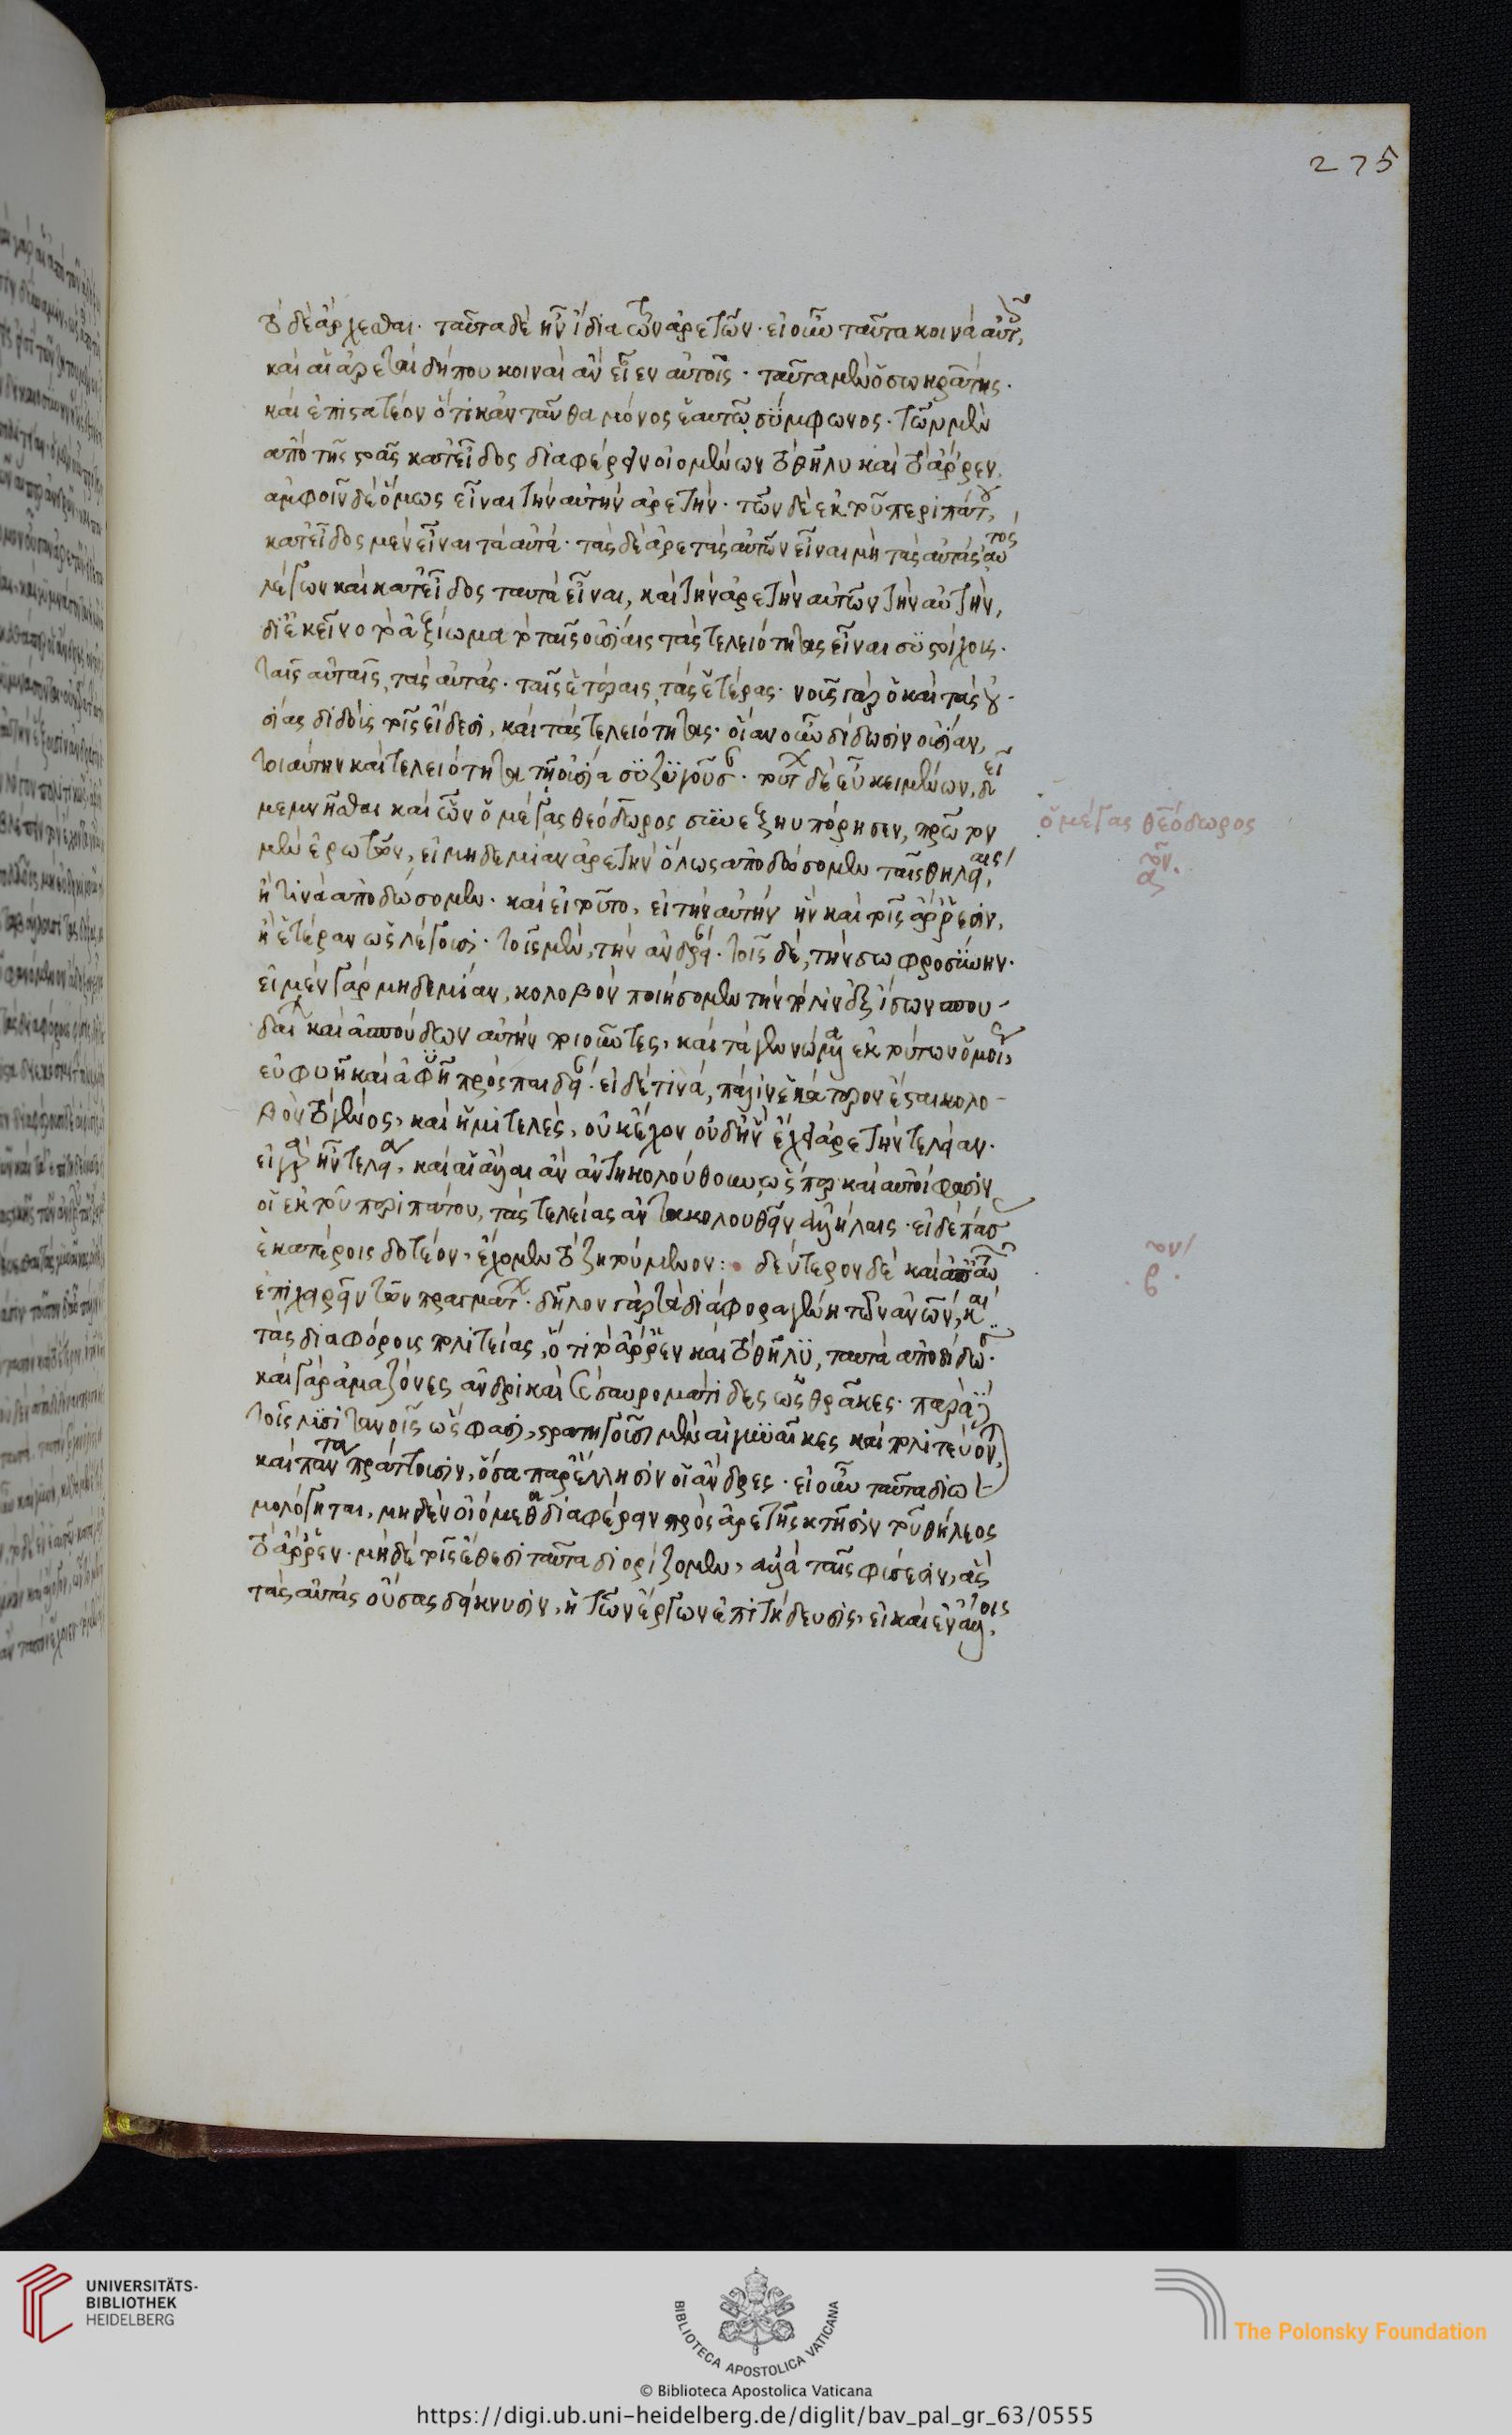 275
τὸ δὲ ἄρχεσθαι· ταῦτα δὲ ἦν ἴδια τῶν ἀρετῶν· εἰ οὖν ταῦτα κοινὰ αὐτοῖς,
καὶ αἱ ἀρεταὶ δήπου κοιναὶ ἂν εἶεν αὐτοῖς· ταῦτα μὲν ὁ σωκράτης·
καὶ ἐπιστατέον ὅτι κἀνταῦθα μόνος ἑαυτῷ σύμφωνος· τῶν μὲν
ἀπὸ τῆς στοᾶς κατ' εἶδος διαφέρειν οἰομένων τὸ θῆλυ καὶ τὸ ἄρρεν,
ἀμφοῖν δὲ ὅμως εἶναι τὴν αὐτὴν ἀρετήν· τῶν δὲ ἐκ τοῦ περιπάτου,
κατ' εἶδος μὲν εἶναι τὰ αὐτά· τὰς δὲ ἀρετὰς αὐτῶν εἶναι μὴ τὰς αὐτὰς· αὐτὸς
λέγων καὶ κατ' εἶδος ταυτὰ εἶναι, καὶ τὴν ἀρετὴν αὐτῶν τὴν αὐτήν,
δι' ἐκεῖνο τὸ ἀξίωμα τὸ ταῖς οὐσίαις τὰς τελειότητας εἶναι συστοίχους·
ταῖς αὐταῖς, τὰς αὐτάς· ταῖς ἑτέραις, τὰς ἑτέρας· νοῦς γὰρ ὁ καὶ τὰς οὐ-
σίας διδοὺς τοῖς εἴδεσι, καὶ τὰς τελειότητας· οἵαν οὖν δίδωσιν οὐσίαν,
τοιαύτην καὶ τελειότητα τῇ οὐσίᾳ συζυγοῦσαν· τούτων δὲ εὖ κειμένων, δεῖ
μεμνῆσθαι καὶ ὧν ὁ μέγας θεόδωρος συνεξηυπόρησεν, πρῶτον
μὲν ἐρωτῶν, εἰ μηδεμίαν ἀρετὴν ὅλως ἀποδώσομεν ταῖς θηλείαις,
ἤ τινα ἀποδώσομεν· καὶ εἰ τοῦτο, εἰ τὴν αὐτὴν ἣν καὶ τοῖς ἄρρεσιν,
ἢ ἑτέραν ὡς λέγουσι· τοῖς μὲν, τὴν ἀνδρείαν· τοῖς δὲ, τὴν σωφροσύνην·
εἰ μὲν γὰρ μηδεμίαν, κολοβὸν ποιήσομεν τὴν πόλιν ἐξ ἴσων σπου-
δαίων καὶ ἀσπούδων αὐτὴν ποιοῦντες, καὶ τὰ γεννώμενα ἐκ τούτων ὁμοίως
εὐφυῆ καὶ ἀφυῆ πρὸς παιδείαν· εἰ δέ τινα, πάλιν ἑκάτερον ἔσται κολο-
βὸν τὸ γένος, καὶ ἡμιτελὲς, οὐκ ἔχον οὐδ' ἣν ἔχει ἀρετὴν τελείαν·
εἰ γὰρ ἦν τελεία, καὶ αἱ ἄλλαι ἂν ἀντηκολούθουν, ὥσπερ καὶ αὐτοί φασιν
οἱ ἐκ τοῦ περιπάτου, τὰς τελείας ἀντακολουθεῖν ἀλλήλαις· εἰ δὲ πάσας
ἑκατέροις δοτέον, ἔχομεν τὸ ζητούμενον: δεύτερον δὲ καὶ ἀπ' αὐτῶν
ἐπιχειρεῖν τῶν πραγμάτων· δῆλον γὰρ τὰ διάφορα γένη τῶν ἀνῶν, καὶ
τὰς διαφόρους πολιτείας, ὅτι τὸ ἄρρεν καὶ τὸ θῆλυ, ταυτὰ ἀποδίδωσιν·
καὶ γὰρ ἀμαζόνες ἀνδρικαὶ καὶ σαυρομάτιδες ὡς θρᾶκες· παρὰ δὲ
τοῖς λυσιτανοῖς ὥς φασι, στρατηγοῦσι μὲν αἱ γυναῖκες καὶ πολιτεύονται
καὶ πάντα πράττουσιν, ὅσα παρ' ἕλλησιν οἱ ἄνδρες· εἰ οὖν ταῦτα διω-
μολόγηται, μηδὲν οἰόμεθα διαφέρειν πρὸς ἀρετῆς κτῆσιν τοῦ θήλεος
τὸ ἄρρεν· μηδὲ τοῖς ἔθεσι ταῦτα διορίζομεν, ἀλλὰ ταῖς φύσεσιν, ἃς
τὰς αὐτὰς οὔσας δείκνυσιν, ἡ τῶν ἔργων ἐπιτήδευσις, εἰ καὶ ἐν ἄλλοις
ὁ μέγας θεόδωρος
α ον·
β ον
UNIVERSITÄTS-
BIBLIOTHEK
HEIDELBERG
BIBLIOTECA APOSTOLICA VATICANA
The Polonsky Foundation
© Biblioteca Apostolica Vaticana
https://digi.ub.uni-heidelberg.de/diglit/bav_pal_gr_63/0555